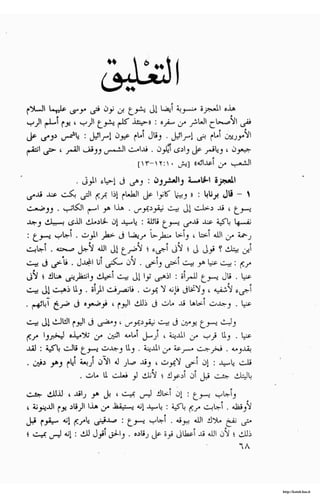 التعْليق
هذه المعجزة منسوبة أيضاً إلى يشوع بن نون فى موسى عليهما السلام
ففى الإصحاح العاشر من سفره : « حينئذ كلم يشوع الرب ، يوم أسلم الرب
الأموريين أمام بنى إسرائيل . وقال أمام عيون إسرائيل : يا شمس دومى على
جبعون ، ويا قمر على وادى أيلون . فدامت الشمس ووقف القمر ، حتى انتقم
الشعب من أعدائه » [ يش ١٠ : ١٢-١٣ ]
المعجزة الخامسة والعشرون : وهى فى إحياء الموتى .
١ – قال برنابا : « وبينما كانوا على الطعام إذا بمريم التى بكت عند قدمى
يشوع ، قد دخلت إلى بيت نيقوديموس . وهذا هو اسم الكاتب . ووضعت
نفسها باكية عند قدمى يشوع قائلة : يا سيد إن الخادمة الذى بسببك وجد
رحمة من الله ، له أخت ، وأخ مطروح مريضاً فى خطر الموت . أجاب يشوع :
أين بيت أختك ؟ قولى لى لأنى أجىء إليه لأضرع إلى الله لأجل صحته . أجابت
مريم : بيت عنيا هو بيت أخى وأختى . لأن سكنى أنا المجدل . فأخى فى بيت
عنيا . قال يشوع للمرأة : اذهبى تواً إلى بيت أخيك وانتظرينى هناك لأنى
أجىء لأشفيه ، ولا تخافى فإنه لا يموت . فانصرفت المرأة . ولما ذهبت إلى بيت
عنيا . وجدت أخاها قد مات فى ذلك اليوم ، فوضعوه فى ضريح آبائهم .
ولبث يشوع يومين فى بيت نيقوديموس ، ومضى فى اليوم الثالث إلى بيت
عنيا . ولما قرب من المدينة ، أرسل أمامه اثنين من تلاميذه ليخبروا مريم
بقدومه . فخرجت مسرعة من المدينة . ولما وجدت يشوع قالت باكية : لقد
قلت يا سيد : إن أخى لا يموت ، وقد صار له الآن أربعة أيام وهو دفين .
يا ليتك جئت قبل أن أدعوك ، لأنك لو فعلت لما مات .
وأجاب يشوع : إن أخاك ليس بميت ، بل هو راقد ، لذلك جئت
لأوقظه . أجابت مريم باكية : يا سيد إنه يستيقظ من هذا الرقاد يوم الدينونة ،
متى نفخ ملاك الله ببوقه . أجاب يشوع : صدقينى يا مريم إنه سيقوم قبل
ذلك اليوم لأن الله قد أعطانى قوة على رقاده . والحق أقول لك : إنه ليس بميت ،
٦٨
http://kotob.has.it